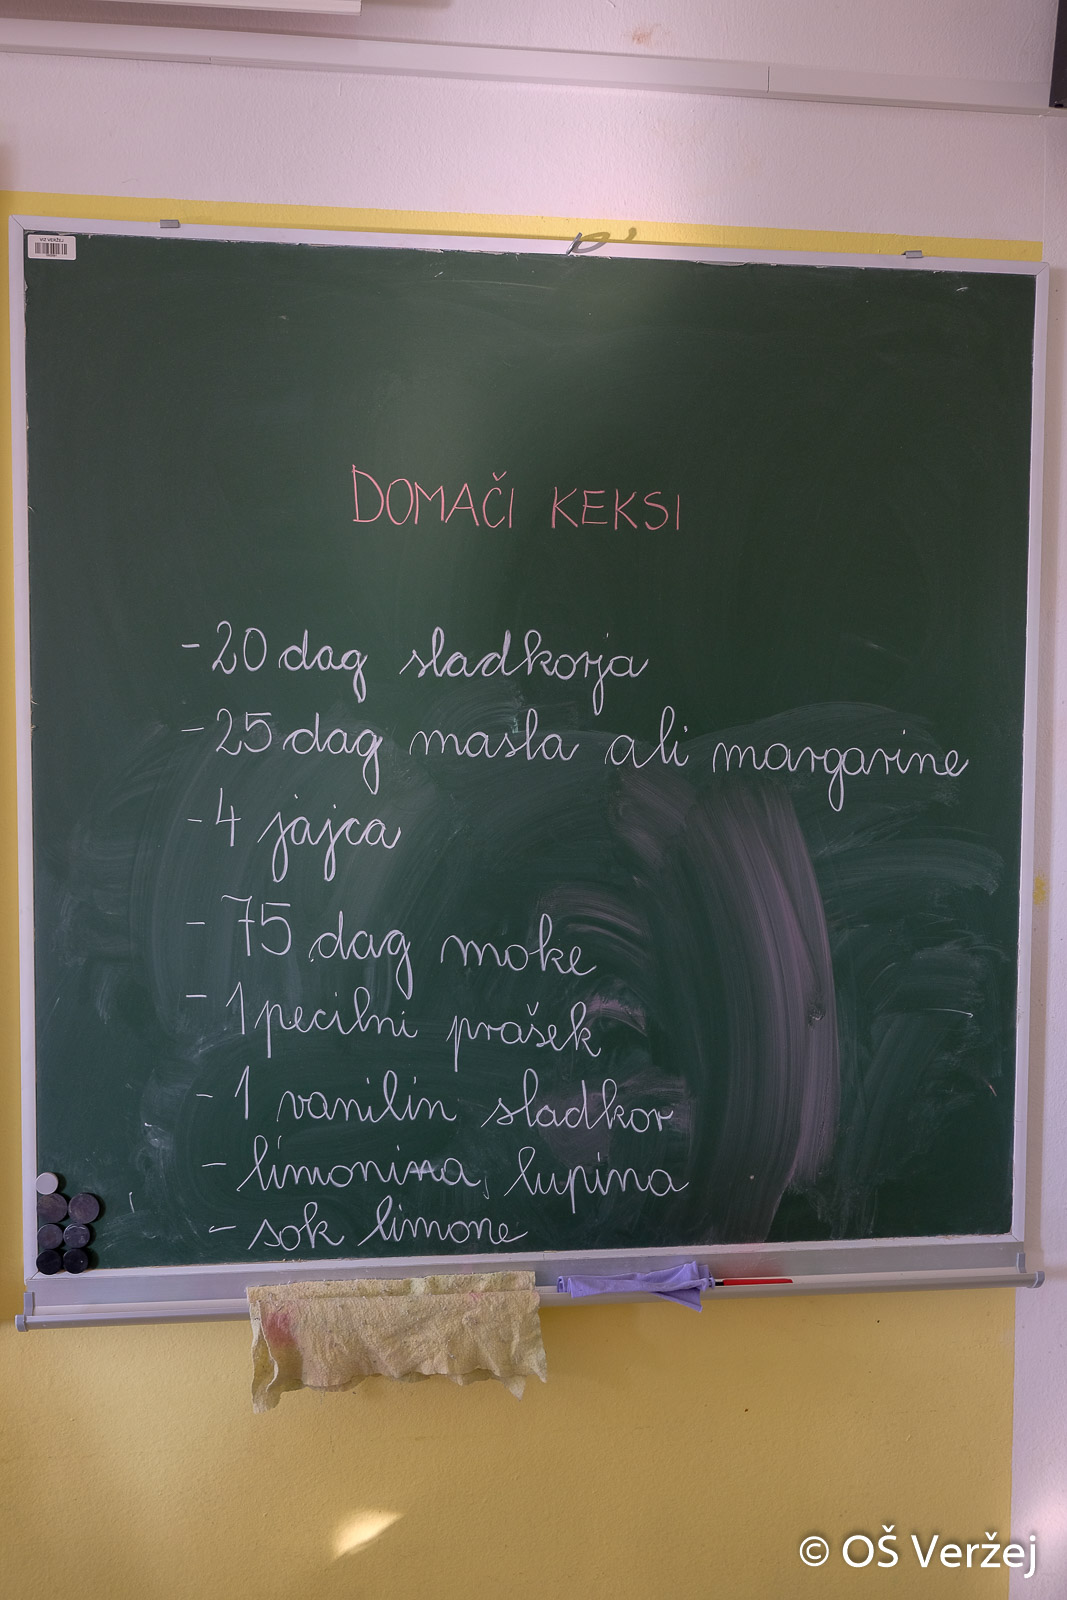 VIZ VERŽEJ
DOMAČI KEKSI
- 20 dag sladkorja
- 25 dag masla ali margarine
- 4 jajca
- 75 dag moke
- 1 pecilni prašek
- 1 vanilin sladkor
- limonina, lupina
- sok limone
© OŠ Veržej